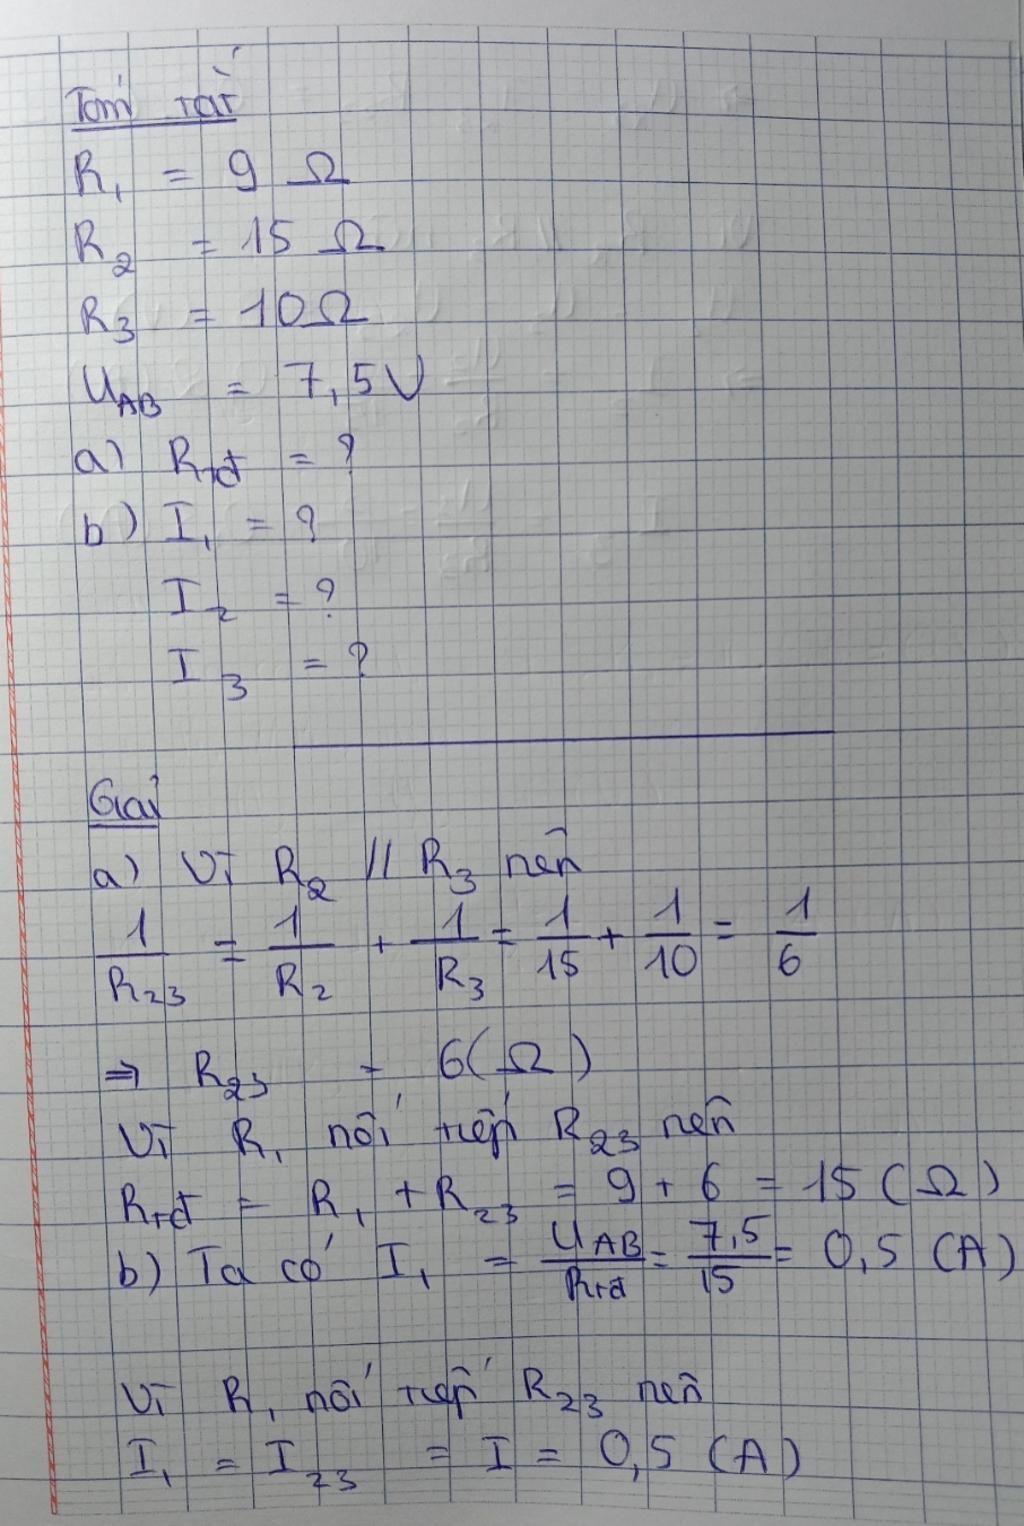 Tóm tắt
R₁ = 9 Ω
R₂ = 15 Ω
R₃ = 10Ω
U_AB = 7,5V
a) R_tđ = ?
b) I₁ = ?
I₂ = ?
I₃ = ?
Giải
a) Vì R₂ // R₃ nên
1/R₂₃ = 1/R₂ + 1/R₃ = 1/15 + 1/10 = 1/6
⇒ R₂₃ = 6(Ω)
Vì R₁ nối tiếp R₂₃ nên
R_tđ = R₁ + R₂₃ = 9 + 6 = 15 (Ω)
b) Ta có I₁ = U_AB/R_tđ = 7,5/15 = 0,5 (A)
Vì R₁ nối tiếp R₂₃ nên
I₁ = I₂₃ = I = 0,5 (A)